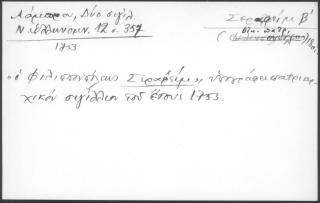 Λάμπρου, Δύο σιγίλ.
Ν. Ελληνομν. 12 σ. 357
1753
Σεραφείμ Β΄
οικ. πατρ.
"ο Φιλιππουπόλεως Σεραφείμ", υπογράφει πατριαρ-
χικόν σιγίλλιον του έτους 1753.